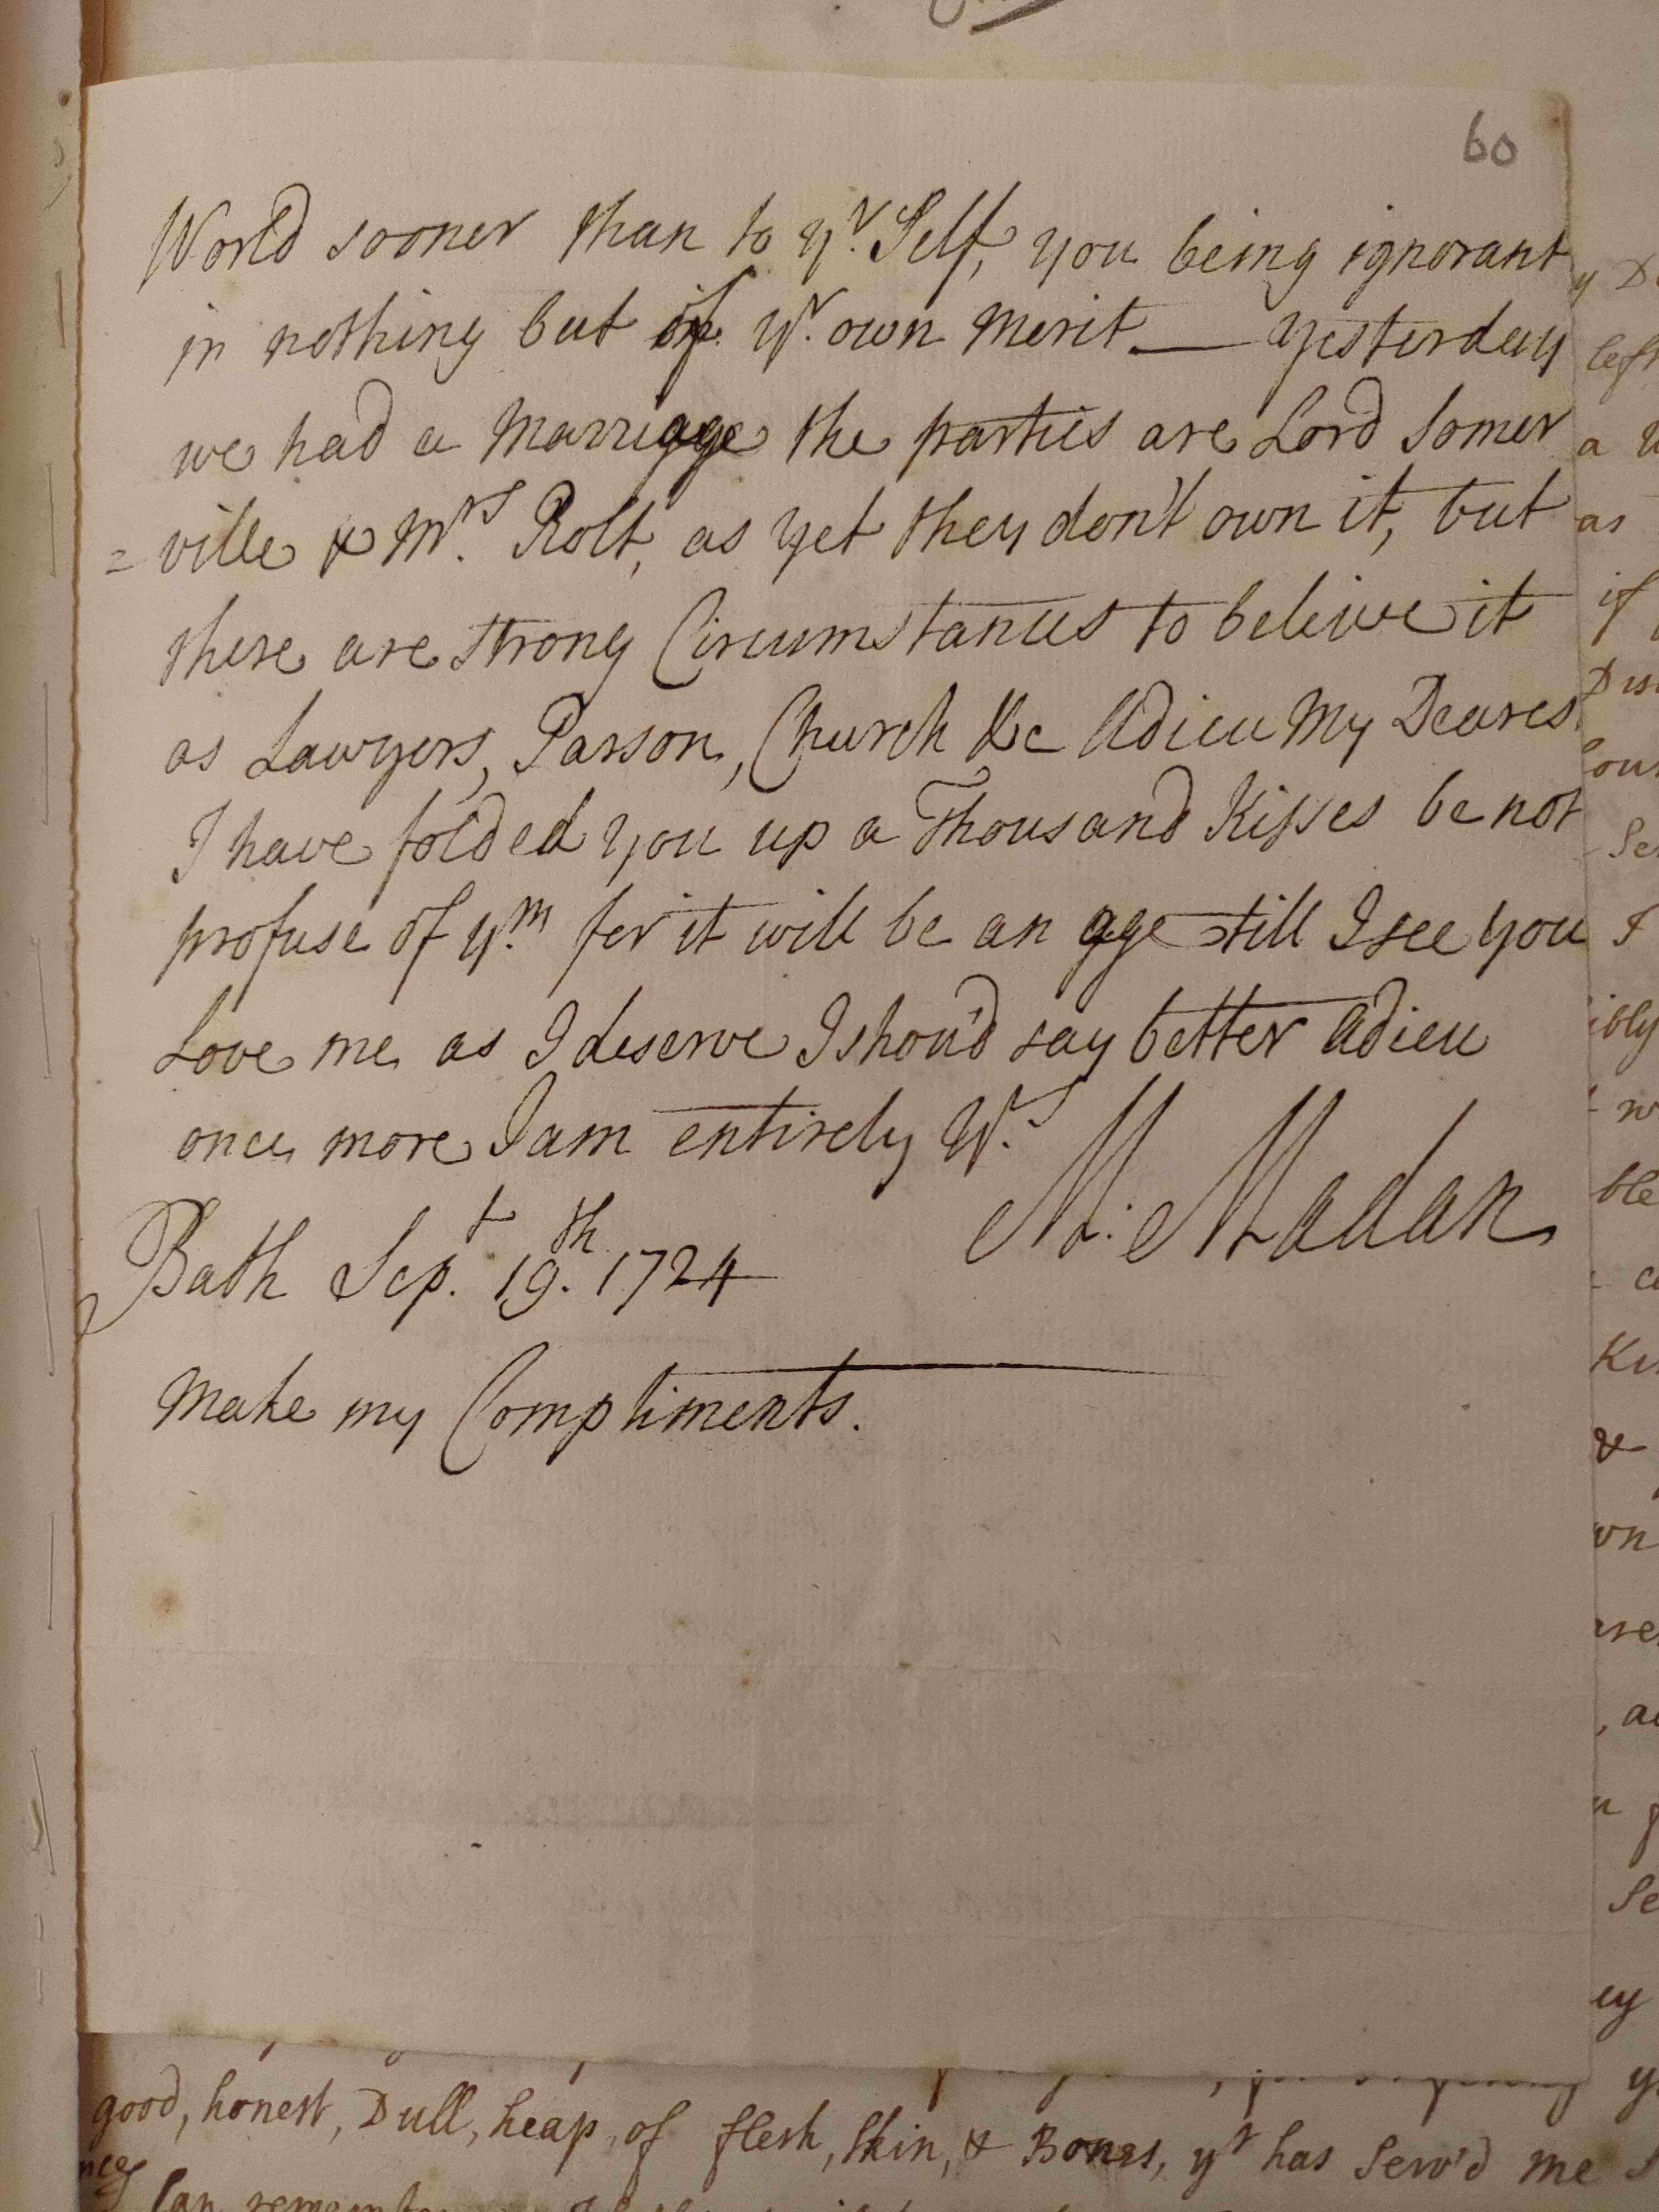 60
World sooner than to yr. Self, you being ignorant
in nothing but in yr. own merit — yesterday
we had a Marriage the parties are Lord Somer
=ville & Mrs. Rolt, as yet they don't own it, but
there are strong Circumstances to beleive it
as Lawyers, Parson, Church &c Adieu My Deares
I have folded you up a Thousand Kisses be not
profuse of ym. for it will be an age till I see you
Love me as I deserve I shou'd say better Adieu
once more I am entirely Yrs.
M: Madan
Bath Sept. 19th. 1724
Make my Compliments.
good, honest, Dull, heap, of flesh, Skin, & Bones, yt has Serv'd me
Can remember